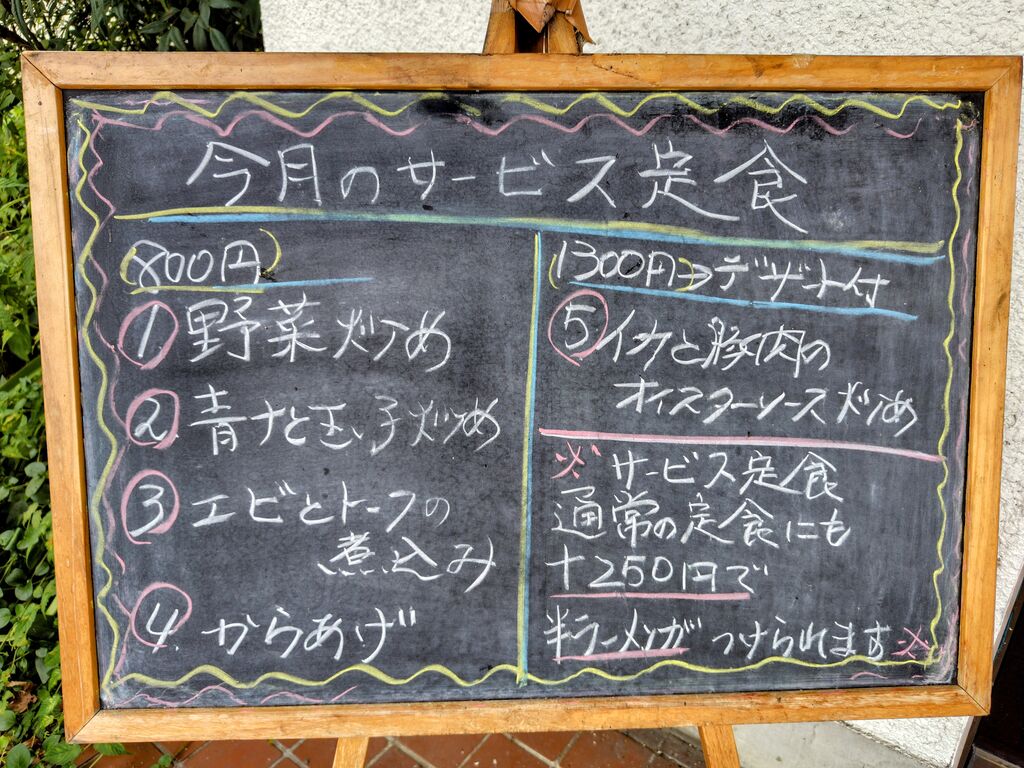 今月のサービス定食
800円
① 野菜炒め
② 青ナと玉子炒め
③ エビとトーフの
煮込み
④ からあげ
1300円→デザート付
⑤ イカと豚肉の
オイスターソース炒め
※ サービス定食
通常の定食にも
+250円で
半ラーメンがつけられます※